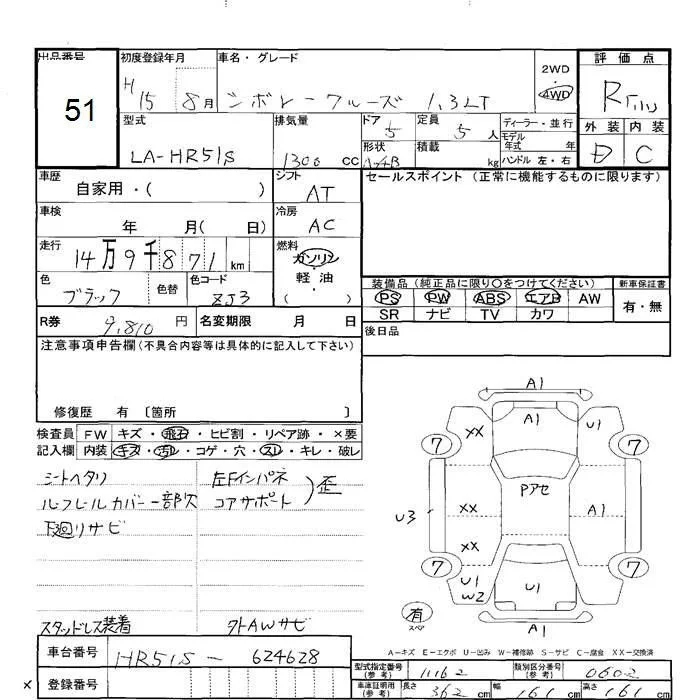 出品番号
51
初度登録年月
H 15 8月
車名・グレード
シボレークルーズ 1.3LT
2WD
4WD
評価点
R
外装 内装
D C
型式
LA-HR51S
排気量
1300 cc
ドア
5
形状
定員
5人
積載
kg
ディーラー・並行
モデル
年式 年
ハンドル 左・右
車歴
自家用・( )
シフト
AT
セールスポイント (正常に機能するものに限ります)
車検
年 月( 日)
冷房
AC
走行
14万9千871 km
燃料
ガソリン
軽油
( )
色
ブラック
色替
色コード
ZJ3
装備品 (純正品に限り〇をつけてください)
PS PW ABS エアB AW
SR ナビ TV カワ
新車保証書
有・無
R券
9,810 円
名変期限 月 日
後日品
注意事項申告欄(不具合内容等は具体的に記入して下さい)
修復歴 有 〔箇所 〕
検査員
記入欄
FW キズ・飛石・ヒビ割・リペア跡・×要
内装 キズ・汚レ・コゲ・穴・スレ・キレ・破レ
シートヘタリ
ルーフレールカバー一部欠
下廻リサビ
左Fインパネ
コアサポート
歪
スタッドレス装着
外AWサビ
A1
XX
U1
7
7
Pアセ
U3
XX
A1
XX
7
7
U1
W2
U1
有
スペア
A1
A-キズ E-エクボ U-凹み W-補修跡 S-サビ C-腐食 XX-交換済
車台番号
HR51S-624628
登録番号
型式指定番号
(参考)
11162
類別区分番号
(参考)
0602
車庫証明用
(参考)
長さ 362 cm
幅 161 cm
高さ 161 cm
×